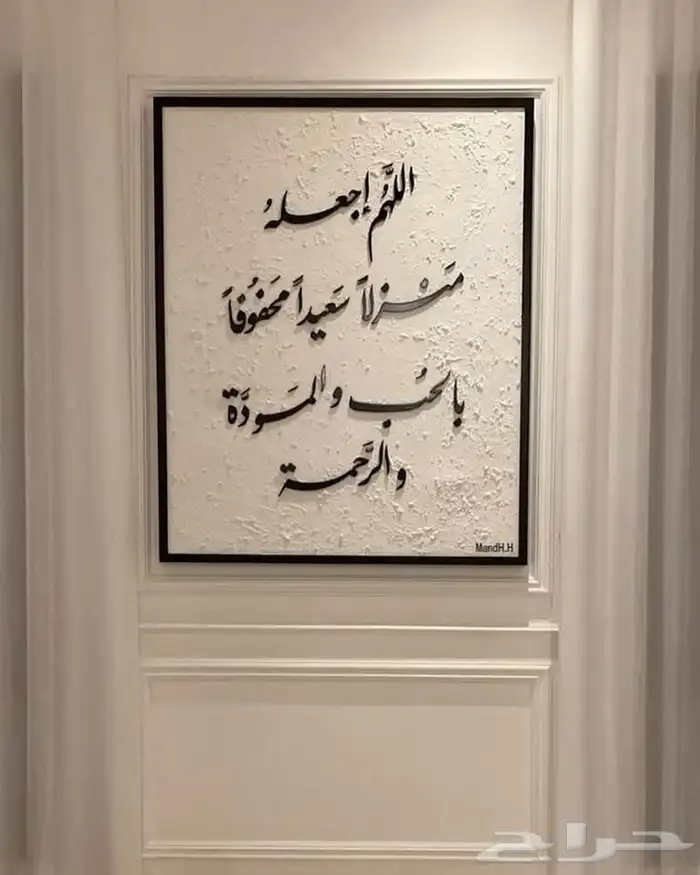 اللَّهُم إجعلهُ
مَنْزلاً سَعيداً محَفُوفاً
بالحُب والمَودَّة
والرَّحمة
MandH.H
حراج